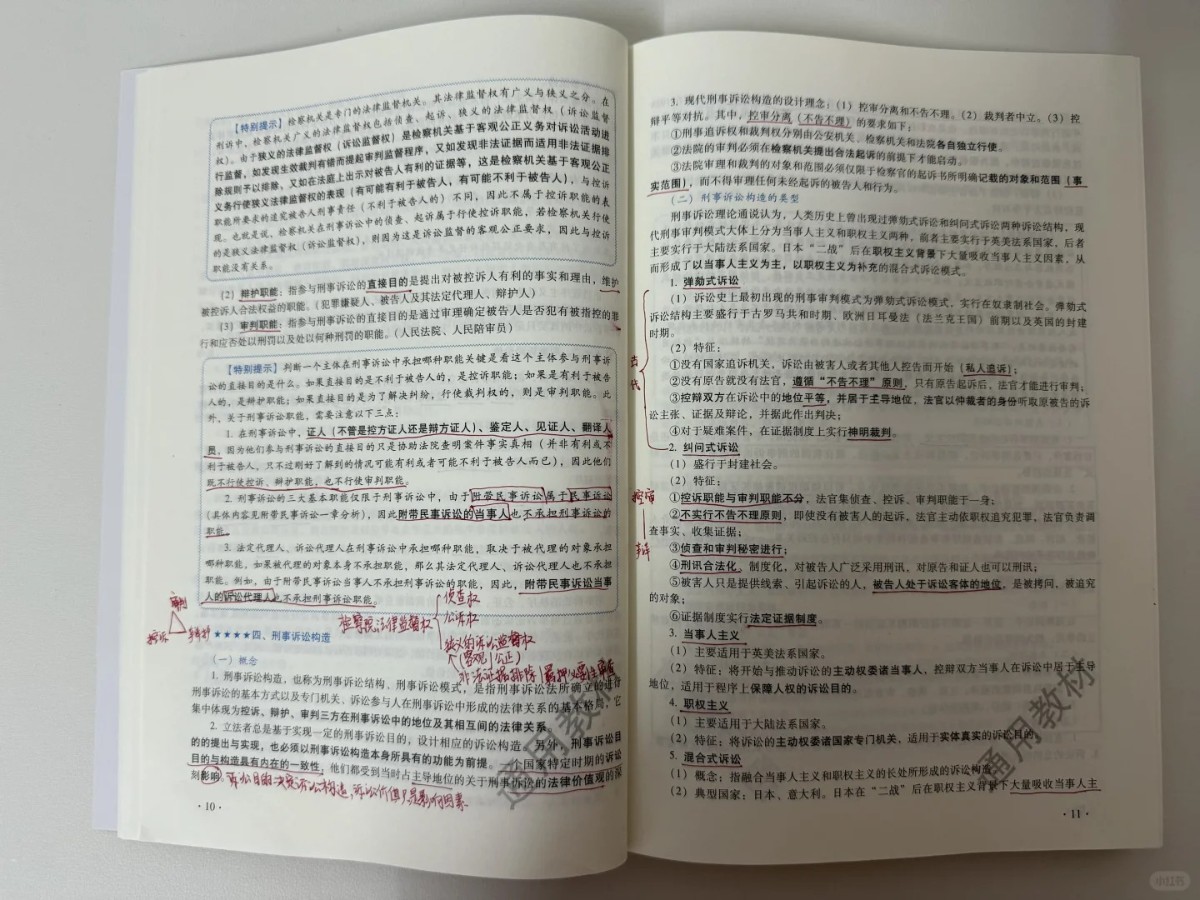 【特别提示】检察机关是专门的法律监督机关。其法律监督权有广义与狭义之分。在
刑诉中，检察机关广义的法律监督权包括侦查、起诉、狭义的法律监督权（诉讼监督
权）。由于狭义的法律监督权（诉讼监督权）是检察机关基于客观公正义务对诉讼活动进
行监督，如发生生效裁判有错而提起审判监督程序，又如发现非法证据而适用非法证据排
除规则予以排除，又如在法庭上出示对被告人有利的证据等，这是检察机关基于客观公正
义务行使狭义法律监督权的表现（有可能有利于被告人，有可能不利于被告人），与控诉
职能所要求的追究被告人刑事责任（不利于被告人的）不同，因此不属于控诉职能的表
现。也就是说，检察机关在刑事诉讼中的侦查、起诉属于行使控诉职能，若检察机关行使
的是狭义法律监督权（诉讼监督权），则因为这是诉讼监督的客观公正要求，因此与控诉
职能没有关系。
（2）辩护职能：指参与刑事诉讼的直接目的是提出对被控诉人有利的事实和理由，维护
被控诉人合法权益的职能。（犯罪嫌疑人、被告人及其法定代理人、辩护人）
（3）审判职能：指参与刑事诉讼的直接目的是通过审理确定被告人是否犯有被指控的罪
行和应否处以刑罚以及处以何种刑罚的职能。（人民法院、人民陪审员）
【特别提示】判断一个主体在刑事诉讼中承担哪种职能关键是看这个主体参与刑事诉
讼的直接目的是什么。如果直接目的是不利于被告人的，是控诉职能；如果是有利于被告
人的，是辩护职能；如果直接目的是为了解决纠纷，行使裁判权的，则是审判职能。此
外，关于刑事诉讼职能，需要注意以下三点：
1. 在刑事诉讼中，证人（不管是控方证人还是辩方证人）、鉴定人、见证人、翻译人
员，因为他们参与刑事诉讼的直接目的只是协助法院查明案件事实真相（并非有利或不
利于被告人，只不过刚好了解到的情况可能有利或者可能不利于被告人而已），因此他们
既不行使控诉、辩护职能，也不行使审判职能。
2. 刑事诉讼的三大基本职能仅限于刑事诉讼中，由于附带民事诉讼属于民事诉讼
（具体内容见附带民事诉讼一章分析），因此附带民事诉讼的当事人也不承担刑事诉讼的
职能。
3. 法定代理人、诉讼代理人在刑事诉讼中承担哪种职能，取决于被代理的对象承担
哪种职能，如果被代理的对象本身不承担职能，那么其法定代理人、诉讼代理人也不承担
职能。例如，由于附带民事诉讼当事人不承担刑事诉讼的职能，因此，附带民事诉讼当事
人的诉讼代理人也不承担刑事诉讼职能。
检察院法律监督权
侦查权
公诉权
狭义的诉讼监督权
（客观 公正）
审判
控诉
辩护
★★★★四、刑事诉讼构造
（一）概念
1. 刑事诉讼构造，也称为刑事诉讼结构、刑事诉讼模式，是指刑事诉讼法所确立的进行
刑事诉讼的基本方式以及专门机关、诉讼参与人在刑事诉讼中形成的法律关系的基本格局，它
集中体现为控诉、辩护、审判三方在刑事诉讼中的地位及其相互间的法律关系。
2. 立法者总是基于实现一定的刑事诉讼目的，设计相应的诉讼构造。另外，刑事诉讼目
的的提出与实现，也必须以刑事诉讼构造本身所具有的功能为前提。
目的与构造具有内在的一致性，他们都受到当时占主导地位的关于刑事诉讼的法律价值观的深
刻影响
诉讼目的决定诉讼构造，诉讼价值只是影响因素
通用教材
· 10 ·
3. 现代刑事诉讼构造的设计理念：（1）控审分离和不告不理。（2）裁判者中立。（3）控
辩平等对抗。其中，控审分离（不告不理）的要求如下：
①刑事追诉权和裁判权分别由公安机关、检察机关和法院各自独立行使。
②法院的审判必须在检察机关提出合法起诉的前提下才能启动。
③法院审理和裁判的对象和范围必须仅限于检察官的起诉书所明确记载的对象和范围（事
实范围），而不得审理任何未经起诉的被告人和行为。
（二）刑事诉讼构造的类型
刑事诉讼理论通说认为，人类历史上曾出现过弹劾式诉讼和纠问式诉讼两种诉讼结构，现
代刑事审判模式大体上分为当事人主义和职权主义两种，前者主要实行于英美法系国家，后者
主要实行于大陆法系国家。日本“二战”后在职权主义背景下大量吸收当事人主义因素，从
而形成了以当事人主义为主，以职权主义为补充的混合式诉讼模式。
1. 弹劾式诉讼
（1）诉讼史上最初出现的刑事审判模式为弹劾式诉讼模式，实行在奴隶制社会。弹劾式
诉讼结构主要盛行于古罗马共和时期、欧洲日耳曼法（法兰克王国）前期以及英国的封建
时期。
（2）特征：
①没有国家追诉机关，诉讼由被害人或者其他人控告而开始（私人追诉）；
②没有原告就没有法官，遵循“不告不理”原则，只有原告起诉后，法官才能进行审判；
③控辩双方在诉讼中的地位平等，并居于主导地位，法官以仲裁者的身份听取原被告的诉
讼主张、证据及辩论，并据此作出判决；
④对于疑难案件，在证据制度上实行神明裁判。
古代
2. 纠问式诉讼
（1）盛行于封建社会。
（2）特征：
①控诉职能与审判职能不分，法官集侦查、控诉、审判职能于一身；
②不实行不告不理原则，即使没有被害人的起诉，法官主动依职权追究犯罪，法官负责调
查事实、收集证据；
③侦查和审判秘密进行；
④刑讯合法化、制度化，对被告人广泛采用刑讯，对原告和证人也可以刑讯；
⑤被害人只是提供线索、引起诉讼的人，被告人处于诉讼客体的地位，是被拷问、被追究
的对象；
⑥证据制度实行法定证据制度。
控审
辩
3. 当事人主义
（1）主要适用于英美法系国家。
（2）特征：将开始与推动诉讼的主动权委诸当事人，控辩双方当事人在诉讼中居于主导
地位，适用于程序上保障人权的诉讼目的。
4. 职权主义
（1）主要适用于大陆法系国家。
（2）特征：将诉讼的主动权委诸国家专门机关，适用于实体真实的诉讼目的。
5. 混合式诉讼
（1）概念：指融合当事人主义和职权主义的长处所形成的诉讼构造。
（2）典型国家：日本、意大利。日本在“二战”后在职权主义背景下大量吸收当事人主
通用教材
· 11 ·
小红书